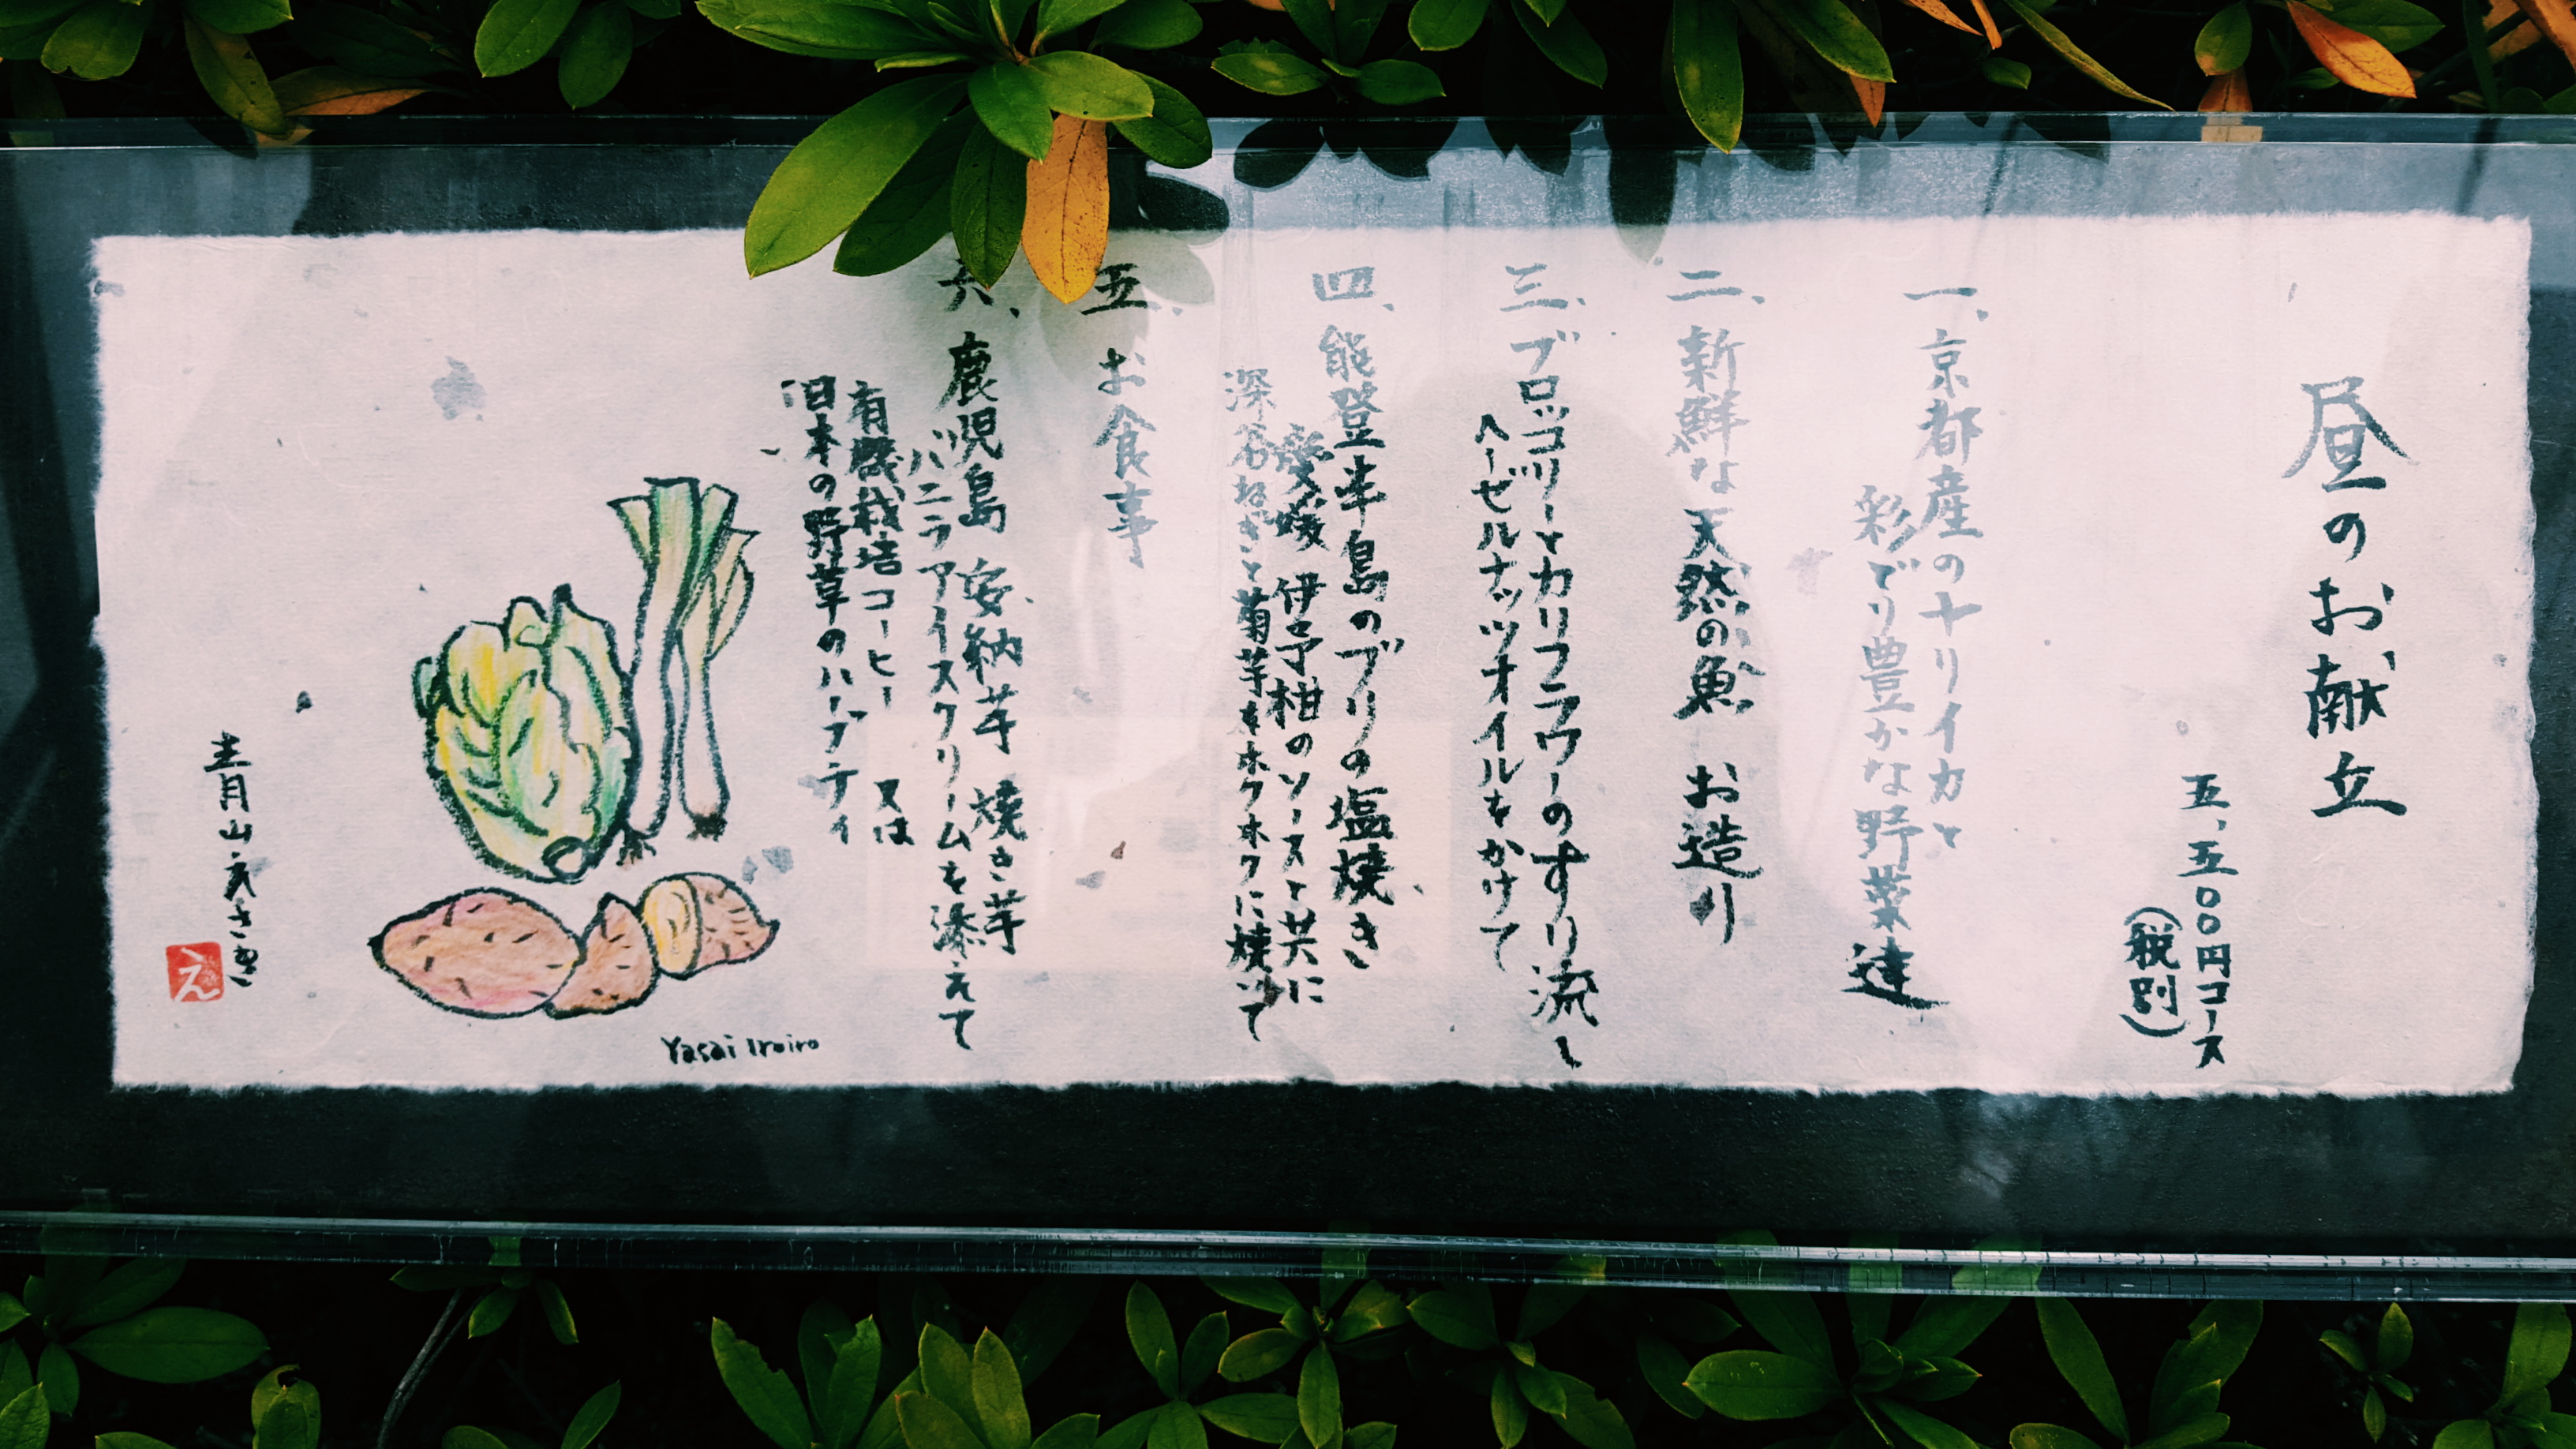 昼のお献立
五、五〇〇円コース
(税別)
一、京都産のヤリイカと
彩どり豊かな野菜達
二、新鮮な天然の魚 お造り
三、ブロッコリーとカリフラワーのすり流し
ヘーゼルナッツオイルをかけて
四、能登半島のブリの塩焼き
愛媛 伊予柑のソースと共に
深谷ねぎと菊芋をホクホクに焼いて
五、お食事
六、鹿児島 安納芋 焼き芋
バニラアイスクリームを添えて
有機栽培コーヒー 又は
日本の野草のハーブティ
Yasai Iroiro
青山えさき
え